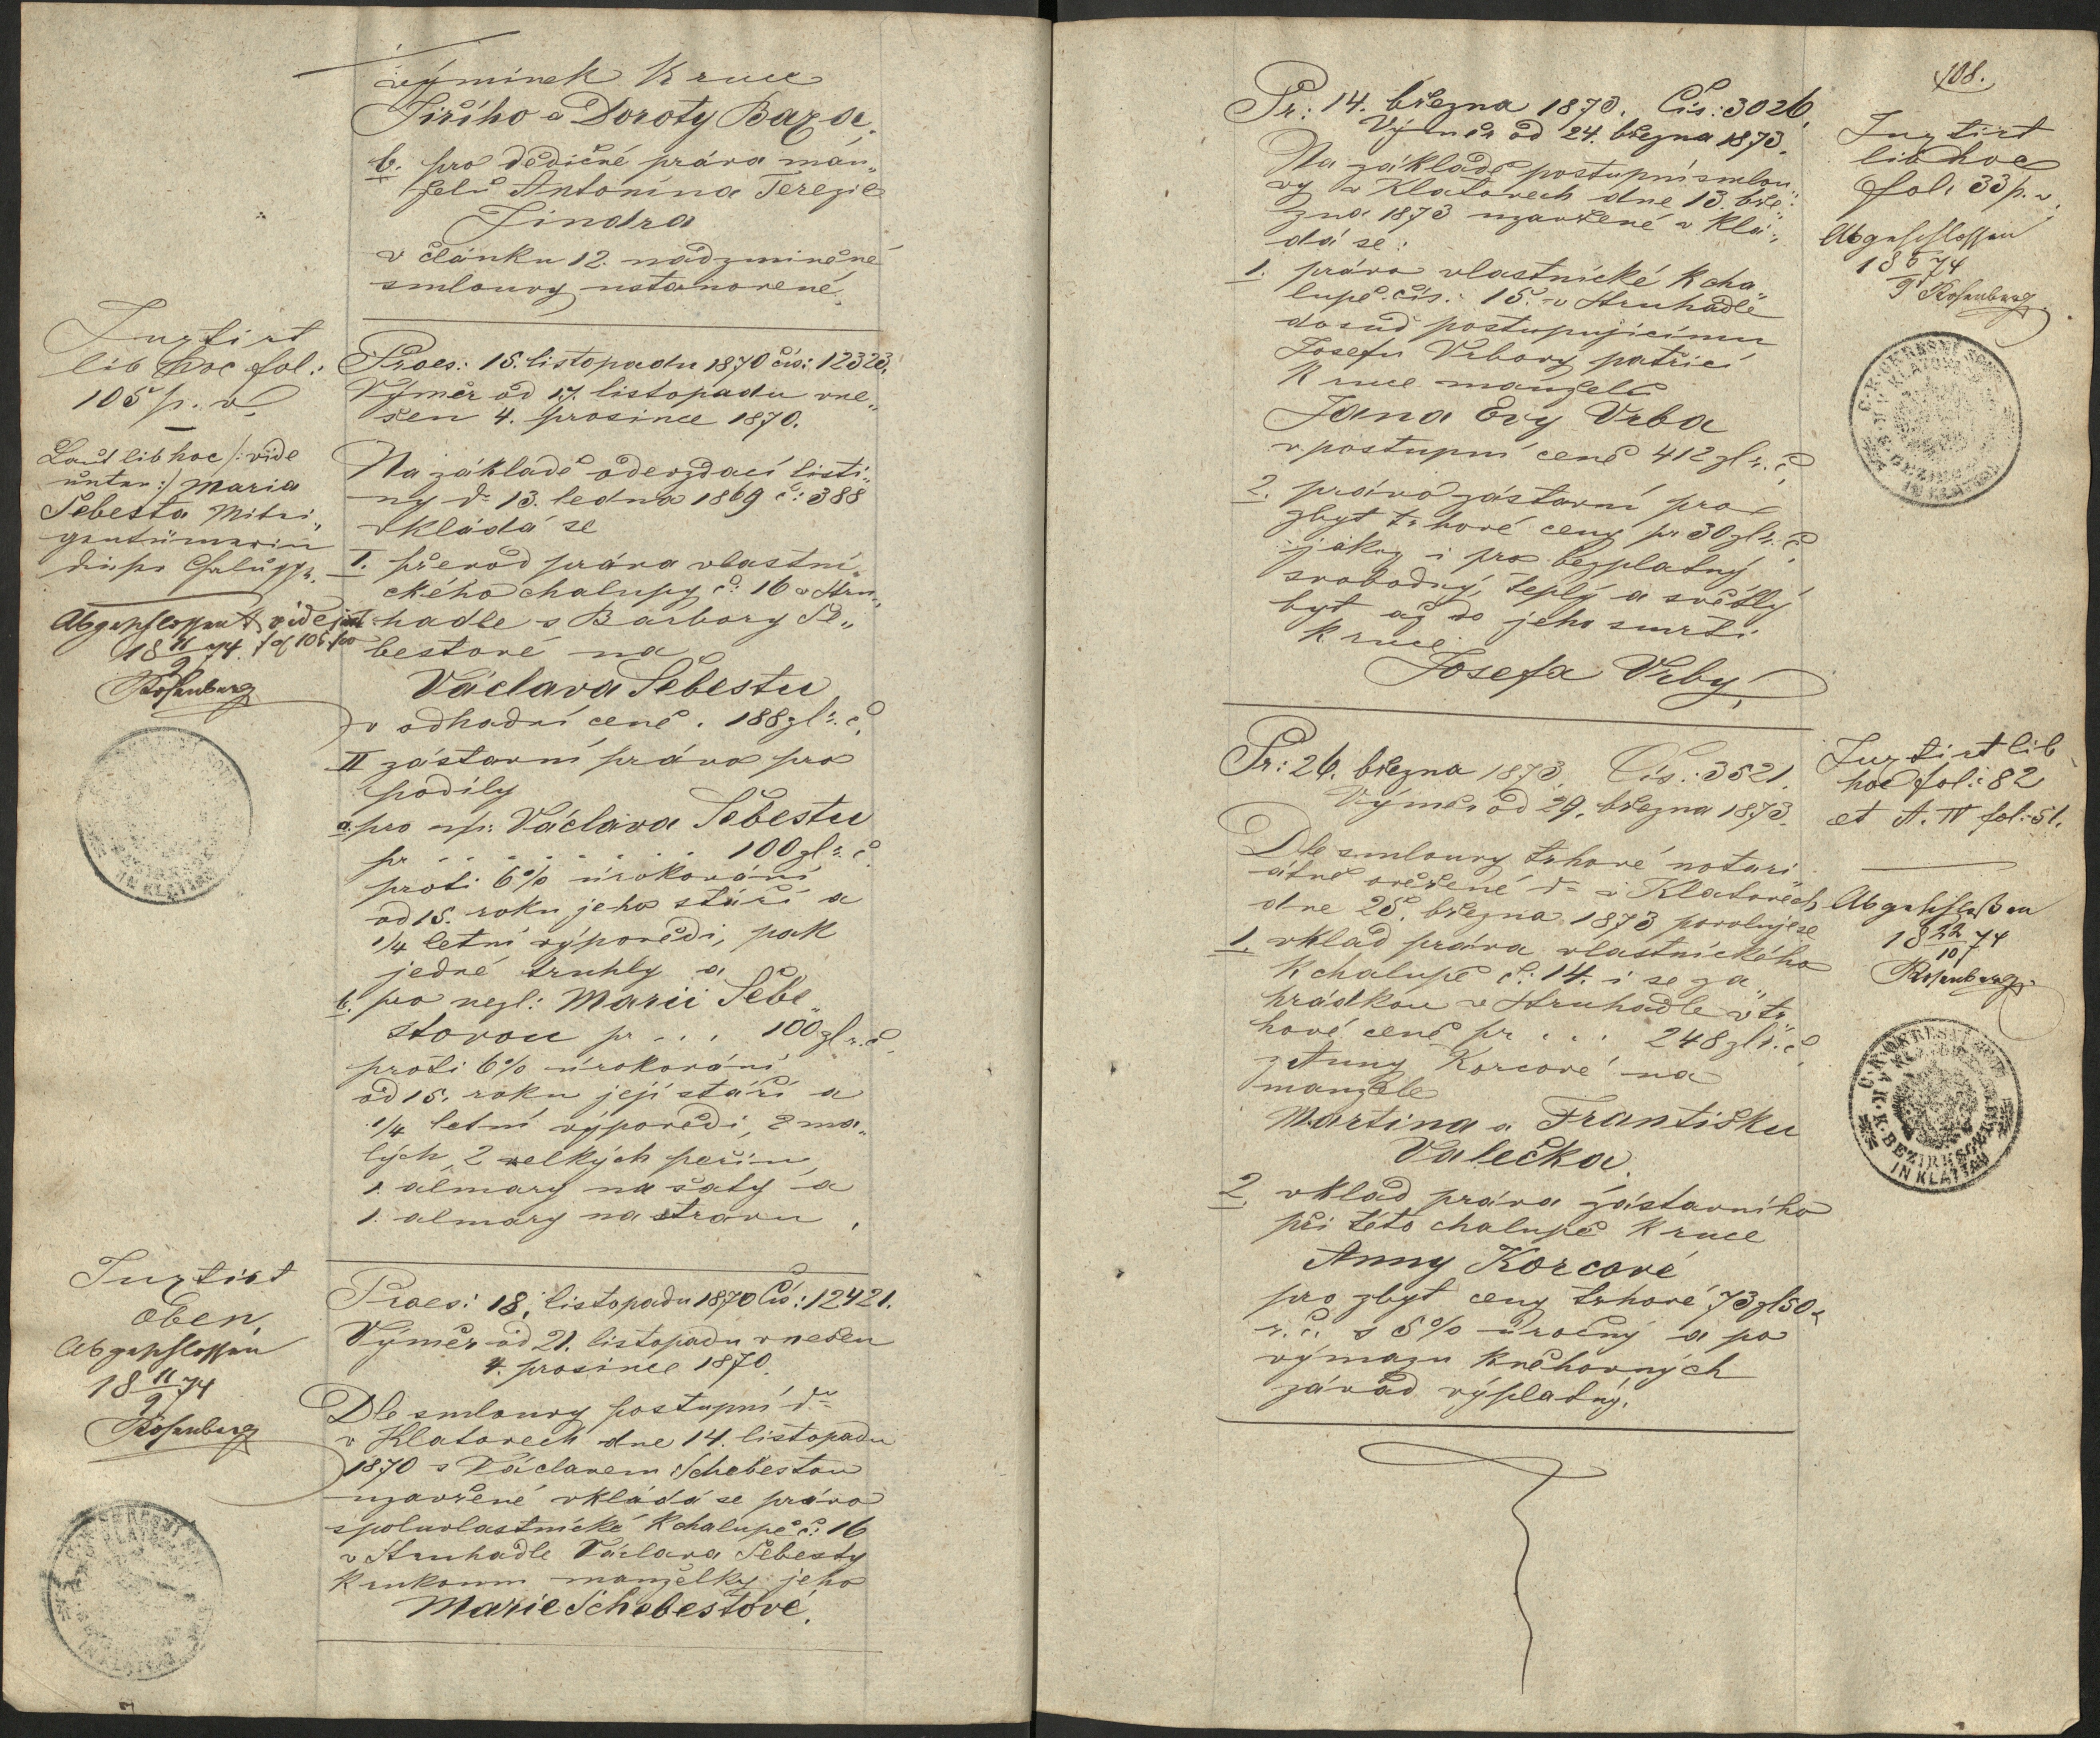 výminek k ruce
Jiřího a Doroty Baxa.
b. pro dědičné práva man„
želů Antonína Terezie
Jindra
v článku 12. nadzmíněné
smlouvy ustanovené.
Inztirt
lib hoc fol:
105 p. v.
Laut lib hoc /: vide
unten :/ Maria
Šebesta Mitei„
genthümerin
dieser Chalupp.
Abgeschlossen vide
fol 106 pro
18 11/9 74.
Rosenberg
Praes: 15. listopadu 1870 čís: 12323.
Výměr od 17. listopadu vne„
šen 4. prosince 1870.
Na základě odevzdací listi„
ny dto 13. ledna 1869 č: 388
vkládá se
I. převod práva vlastni„
ckého chalupy č: 16 v Stru„
hadle s Barbory Še„
bestové na
Václava Šebestu
v odhadní ceně . 188 zl r. č.
II zástavní právo pro
podíly
a. pro nzl: Václava Šebestu
pr . . . . . . 100 zl r. č.
proti 6% úrokování
od 15. roku jeho stáří a
1/4 letní výpovědi, pak
jedné truhly a
b. pro nezl: Marii Šebe„
stovou pr . . . 100 zl r. č.
proti 6% úrokování
od 15. roku její stáří a
1/4 letní výpovědi, 2 ma„
lých, 2 velkých peřin,
1. almary na šaty a
1. almary na stravu.
Inztirt
Oben.
Abgeschlossen
18 11/9 74
Rosenberg
Praes: 18. listopadu 1870 Čís: 12421.
Výměr od 21. listopadu vnešen
4. prosince 1870.
Dle smlouvy postupní dto
v Klatovech dne 14. listopadu
1870 s Václavem Schebestou
uzavřené vkládá se právo
spoluvlastnické k chalupě č: 16
v Struhadle Václava Šebesty
k rukoum manželky jeho
Marie Schebestové.
108.
Pr: 14. března 1873. Čís: 3026.
Výměr od 24. března 1873.
Na základě postupní smlou„
vy v Klatovech dne 13. bře„
zna 1873 uzavřené vklá„
dá se:
1. právo vlastnické k cha„
lupě čís: 15. v Struhadle
dosud postupujícímu
Josefu Vrbovy patřící
k ruce manželů
Jana Evy Vrba
v postupní ceně 412 zl r. č.
2. právo zástavní pro
zbyt trhové ceny pr 30 zl r. č.
jakož i pro bezplatný
svobodný, teplý a světlý
byt až do jeho smrti
k ruce
Josefa Vrby,
Inztirt
lib hoc
fol: 33 p. v.
Abgeschlossen
18 5/9 74
Rosenberg
Pr: 26. března 1873. Čís: 3521.
Výměr od 29. března 1873.
Dle smlouvy trhové notari„
átně ověřené dto v Klatovech
dne 25. března 1873 povoluje se
1. vklad práva vlastnického
k chalupě č: 14. i se za„
hrádkou v Struhadle v tr„
hové ceně pr . . . 248 zl r. č.
z Anny Korcové na
manžele
Martina a Františku
Valečka.
2. vklad práva zástavního
při této chalupě k ruce
Anny Korcové
pro zbyt ceny trhové 73 zl 50 x
r. č. s 5% úročný a po
výmazu kněhovných
závad výplatný.
Inztirt lib
hoc fol: 82
et A. IV fol: 51.
Abgeschloßen
18 22/10 74
Rosenberg
C. K. OKRESNÍ SOUD
V KLATOVECH
K. K. BEZIRKSGERICHT
IN KLATTAU